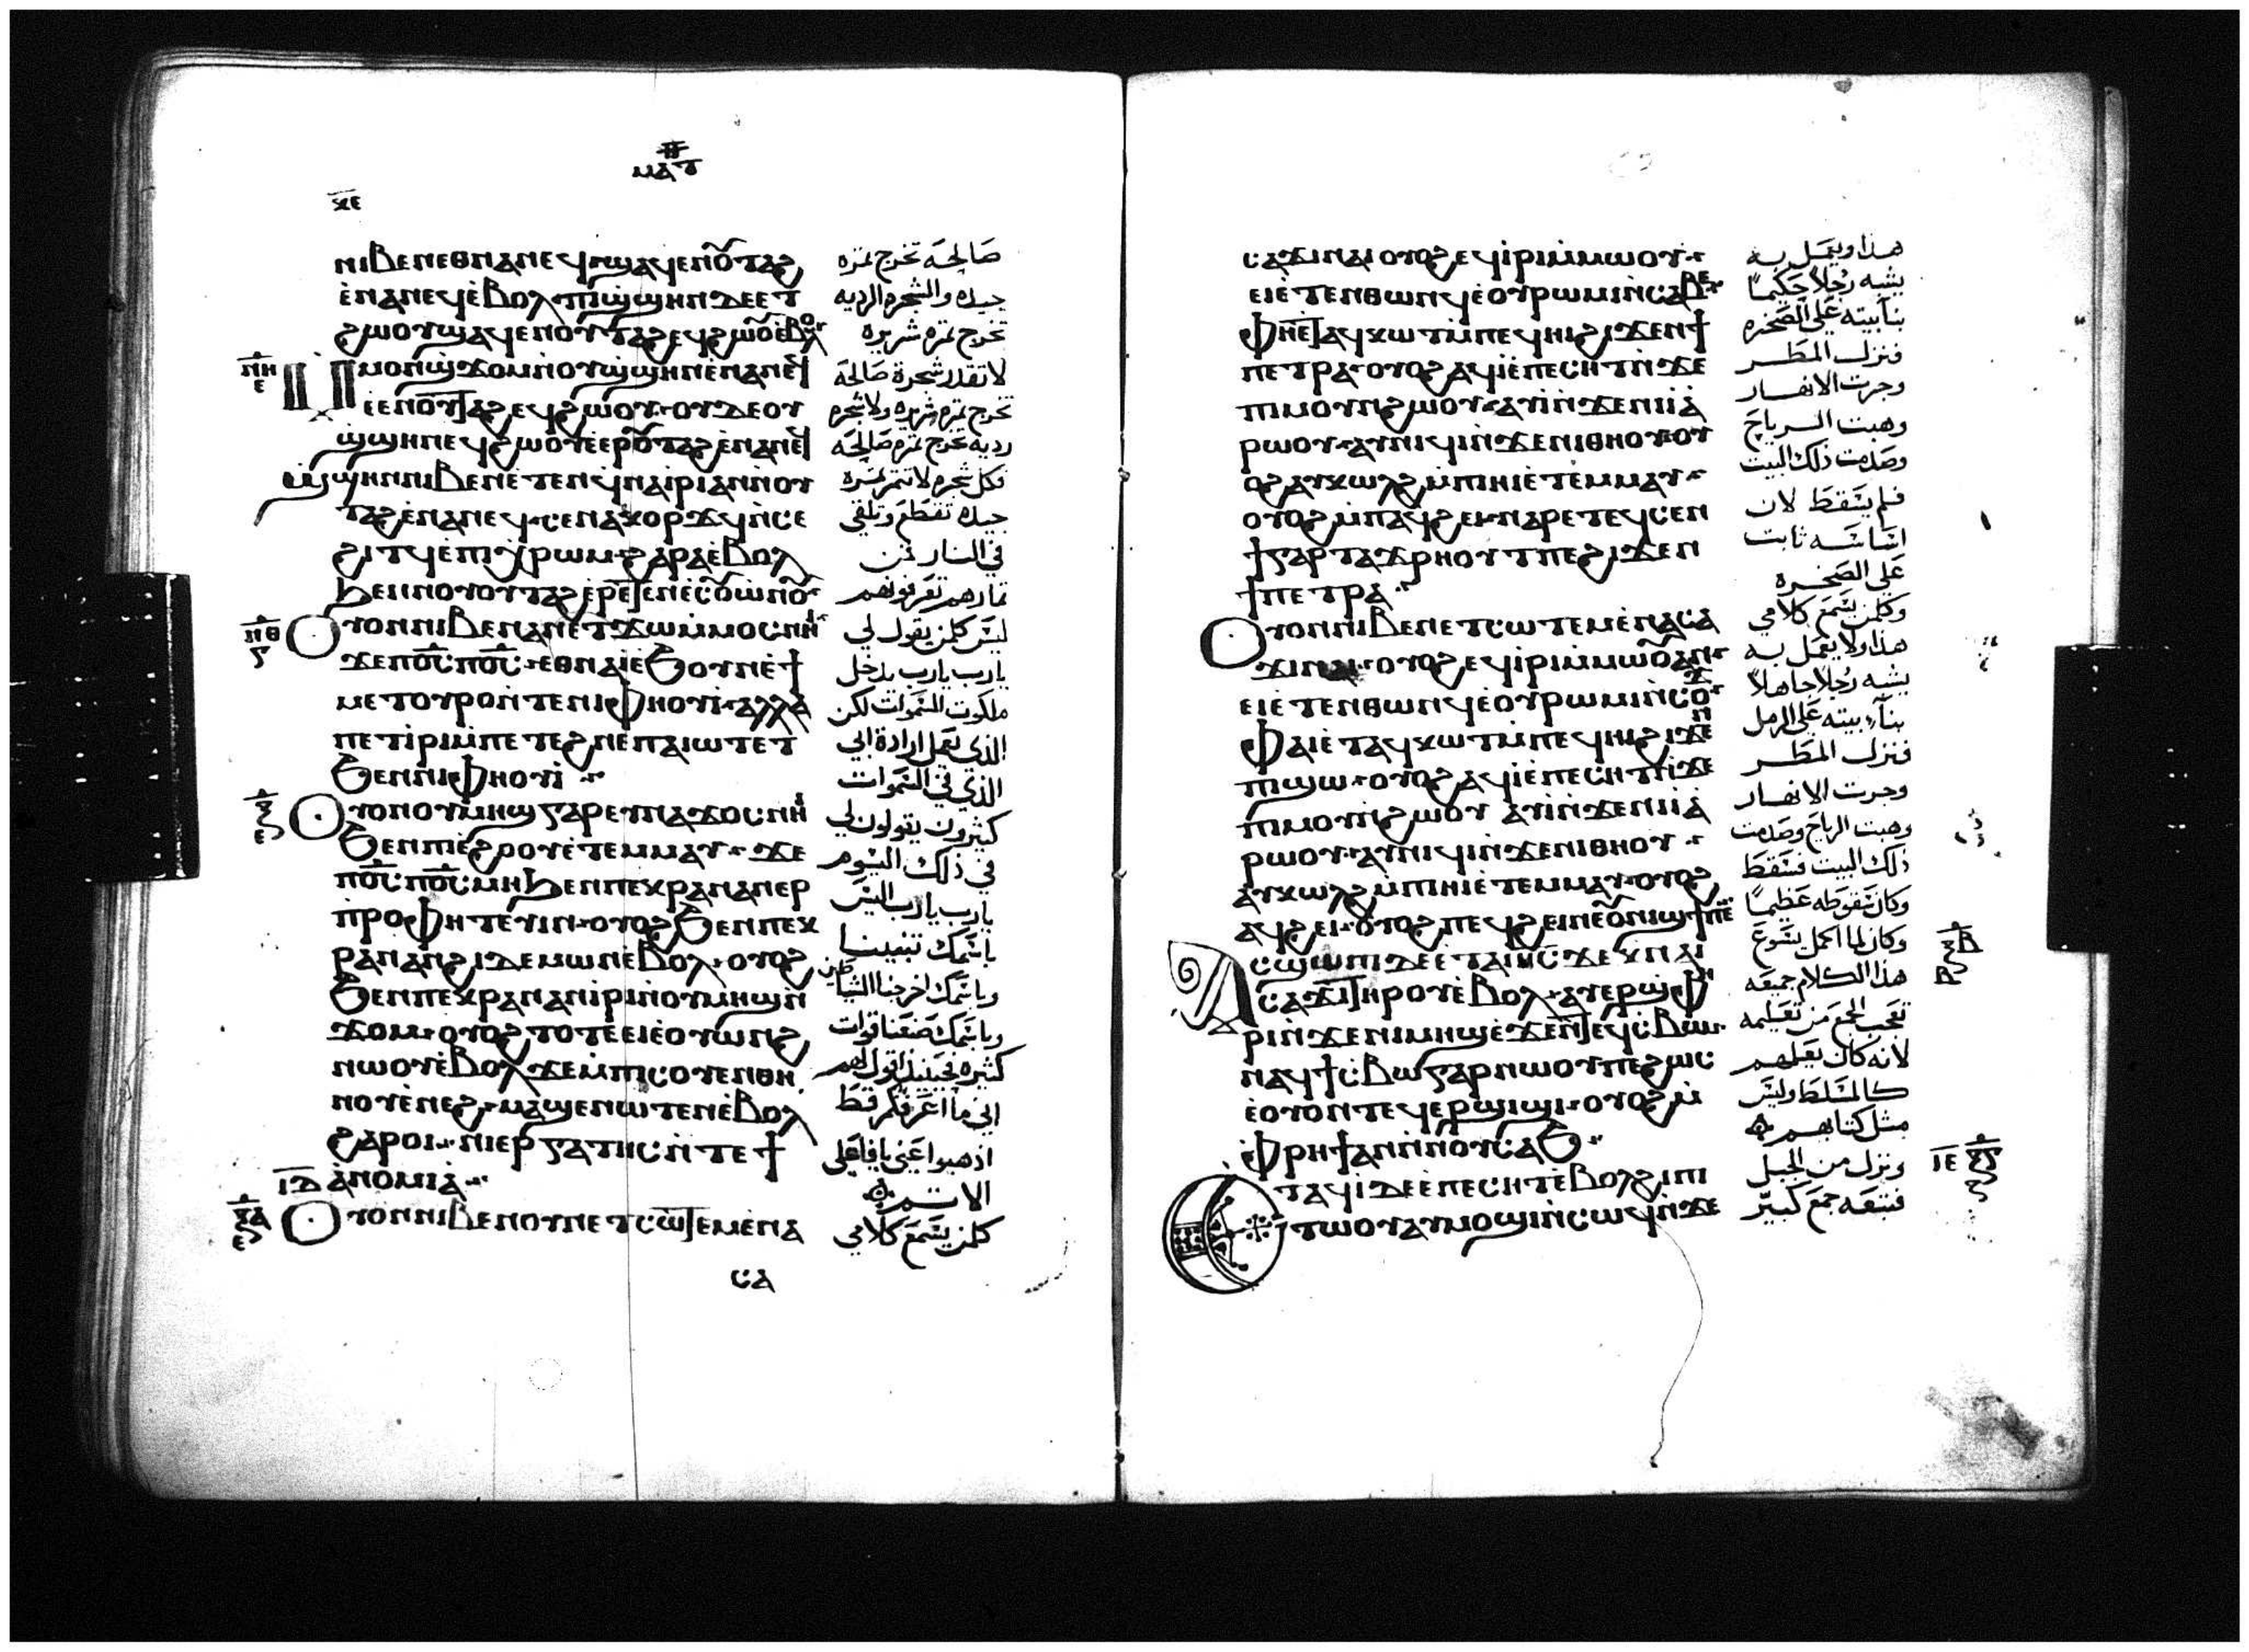 ⲙⲁⲧ
ⲛⲓⲃⲉⲛⲉⲑⲛⲁⲛⲉϥⲛϣⲁϥⲉⲛⲟⲩⲧⲁϩ
ⲉⲛⲁⲛⲉϥⲉⲃⲟⲗ ⲡⲓϣϣⲏⲛⲇⲉⲉⲧ
ϩⲱⲟⲩϣⲁϥⲉⲛⲟⲩⲧⲁϩⲉϥϩⲱⲟⲩⲉⲃⲟⲗ
ⲙⲙⲟⲛϣϫⲟⲙⲛⲟⲩϣϣⲏⲛⲉⲛⲁⲛⲉϥ
ⲉⲉⲛⲟⲩⲧⲁϩⲉϥϩⲱⲟⲩ ⲟⲩⲇⲉⲟⲩ
ϣϣⲏⲛⲉϥϩⲱⲟⲩⲉⲉⲣⲟⲩⲧⲁϩⲉⲛⲁⲛⲉϥ
ϣϣⲏⲛⲛⲓⲃⲉⲛⲉⲧⲉⲛϥⲛⲁⲓⲣⲓⲁⲛⲛⲟⲩ
ⲧⲁϩⲉⲛⲁⲛⲉϥ ⲥⲉⲛⲁⲕⲟⲣϫϥⲛⲥⲉ
ϩⲓⲧϥⲉⲡⲓⲭⲣⲱⲙ ϩⲁⲣⲁⲉⲃⲟⲗ
ϧⲉⲛⲛⲟⲩⲟⲩⲧⲁϩⲉⲣⲉⲧⲉⲛⲉⲥⲟⲩⲱⲛⲟⲩ
ⲟⲩⲟⲛⲛⲓⲃⲉⲛⲁⲛⲉⲧϫⲱⲙⲙⲟⲥⲛⲏⲓ
ϫⲉⲡⲟ̅ⲥ̅ⲡⲟ̅ⲥ̅ ⲉⲑⲛⲁⲓⲉϧⲟⲩⲛⲉϯ
ⲙⲉⲧⲟⲩⲣⲟⲛⲧⲉⲛⲓⲫⲏⲟⲩⲓ ⲁⲗⲗⲁ
ⲡⲉⲧⲓⲣⲓⲙⲡⲉⲧⲉϩⲛⲉⲡⲁⲓⲱⲧⲉⲧ
ϧⲉⲛⲛⲓⲫⲏⲟⲩⲓ
ⲟⲩⲟⲛⲟⲩⲙⲏϣⲅⲁⲣⲉⲩⲛⲁϫⲟⲥⲛⲏⲓ
ϧⲉⲛⲡⲓⲉϩⲟⲟⲩⲉⲧⲉⲙⲙⲁⲩ ϫⲉ
ⲡⲟ̅ⲥ̅ⲡⲟ̅ⲥ̅ⲙⲏϧⲉⲛⲡⲉⲕⲣⲁⲛⲁⲛⲉⲣ
ⲡⲣⲟⲫⲏⲧⲉⲩⲓⲛ ⲟⲩⲟϩϧⲉⲛⲡⲉⲕ
ⲣⲁⲛⲁⲛϩⲓⲇⲉⲙⲱⲛⲉⲃⲟⲗ ⲟⲩⲟϩ
ϧⲉⲛⲡⲉⲕⲣⲁⲛⲁⲛⲓⲣⲓⲛⲟⲩⲙⲏϣⲛ
ϫⲟⲙ ⲟⲩⲟϩⲧⲟⲧⲉⲉⲓⲉⲟⲩⲱⲛϩ
ⲛⲱⲟⲩⲉⲃⲟⲗϫⲉⲙⲡⲓⲥⲟⲩⲉⲛⲑⲏ
ⲛⲟⲩⲉⲛⲉϩ ⲙⲁϣⲉⲛⲱⲧⲉⲛⲉⲃⲟⲗ
ϩⲁⲣⲟⲓ ⲛⲓⲉⲣⲅⲁⲧⲏⲥⲛⲧⲉϯ
ⲁⲛⲟⲙⲓⲁ
ⲟⲩⲟⲛⲛⲓⲃⲉⲛⲟⲩⲛⲉⲧⲥⲱⲧⲉⲙⲉⲛⲁ
ⲥⲁ
صالحه تخرج ثمره
جيده والشجره الرديه
تخرج ثمره شريره
لا تقدر شجرة صالحة
تخرج ثمره شريره ولا شجره
رديه تخرج ثمره صالحه
فكل شجره لا تثمر ثمره
جيده تقطع وتلقي
في النار فمن
ثمارهم تعرفونهم
ليس كلمن يقول لي
يا رب يا رب يدخل
ملكوت السموات لكن
الذي يعمل ارادة ابي
الذي في السموات
كثيرون يقولون لي
في ذلك اليوم
يا رب يا رب اليس
باسمك تنبينا
وباسمك اخرجنا الشياطين
وباسمك صنعنا قوات
كثيره فحينيذ اقول لهم
اني ما اعرفكم قط
اذهبوا عني يا فاعلي
الاثم
كلمن يسمع كلامي
ⲥⲁϫⲓⲛⲁⲓⲟⲩⲟϩⲉϥⲓⲣⲓⲙⲙⲱⲟⲩ
ⲉⲓⲉⲧⲉⲛⲑⲱⲛϥⲉⲟⲩⲣⲱⲙⲓⲛⲥⲁⲃⲉ
ⲫⲏⲉⲧⲁϥⲕⲱⲧⲙⲡⲉϥⲏⲓϩⲓϫⲉⲛϯ
ⲡⲉⲧⲣⲁ ⲟⲩⲟϩⲁϥⲓⲉⲡⲉⲥⲏⲧⲛϫⲉ
ⲡⲓⲙⲟⲩⲛϩⲱⲟⲩ ⲁⲩⲓⲛϫⲉⲛⲓⲓⲁ
ⲣⲱⲟⲩ ⲁⲩⲛⲓϥⲓⲛϫⲉⲛⲓⲑⲏⲟⲩ ⲟⲩ
ⲟϩⲁⲩⲕⲱⲗϩⲙⲡⲓⲏⲓⲉⲧⲉⲙⲙⲁⲩ
ⲟⲩⲟϩⲙⲡⲁϥϩⲉⲓ ⲛⲁⲣⲉⲧⲉϥⲥⲉⲛ
ϯⲅⲁⲣⲧⲁϫⲣⲏⲟⲩⲧⲡⲉϩⲓϫⲉⲛ
ϯⲡⲉⲧⲣⲁ
ⲟⲩⲟⲛⲛⲓⲃⲉⲛⲉⲧⲥⲱⲧⲉⲙⲉⲛⲁⲥⲁ
ϫⲓⲛⲁⲓ ⲟⲩⲟϩⲉϥⲓⲣⲓⲙⲙⲱⲟⲩⲁⲛ
ⲉⲓⲉⲧⲉⲛⲑⲱⲛϥⲉⲟⲩⲣⲱⲙⲓⲛⲥⲟϫ
ⲫⲁⲓⲉⲧⲁϥⲕⲱⲧⲙⲡⲉϥⲏⲓϩⲓϫⲉⲛ
ⲡⲓϣⲱ ⲟⲩⲟϩⲁϥⲓⲉⲡⲉⲥⲏⲧⲛϫⲉ
ⲡⲓⲙⲟⲩⲛϩⲱⲟⲩ ⲁⲩⲓⲛϫⲉⲛⲓⲓⲁ
ⲣⲱⲟⲩ ⲁⲩⲛⲓϥⲓⲛϫⲉⲛⲓⲑⲏⲟⲩ
ⲁⲩⲕⲱⲗϩⲙⲡⲓⲏⲓⲉⲧⲉⲙⲙⲁⲩ ⲟⲩⲟϩ
ⲁϥϩⲉⲓ ⲟⲩⲟϩⲡⲉϥϩⲉⲓⲛⲉⲟⲩⲛⲓϣϯⲡⲉ
ⲁⲥϣⲱⲡⲓⲇⲉⲉⲧⲁⲓⲏⲥϫⲉⲕⲛⲁⲓ
ⲥⲁϫⲓⲧⲏⲣⲟⲩⲉⲃⲟⲗ ⲁⲩⲉⲣϣⲫⲏ
ⲣⲓⲛϫⲉⲛⲓⲙⲏϣⲉϫⲉⲛⲧⲉϥⲥⲃⲱ
ⲛⲁϥϯⲥⲃⲱⲅⲁⲣⲛⲱⲟⲩⲡⲉϩⲱⲥ
ⲉⲟⲩⲟⲛⲧⲉϥⲉⲣϣⲓϣⲓ ⲟⲩⲟϩⲙ
ⲫⲣⲏϯⲁⲛⲛⲛⲟⲩⲥⲁϧ
ⲉⲧⲁϥⲓⲇⲉⲉⲡⲉⲥⲏⲧⲉⲃⲟⲗϩⲓⲡⲓ
ⲧⲱⲟⲩⲁⲩⲙⲟϣⲓⲛⲥⲱϥⲛϫⲉ
هذا ويعمل به
يشبه رجلا حكيما
بنا بيته علي الصخره
فنزل المطر
وجرت الانهار
وهبت الرياح
وصدمت ذلك البيت
فلم يسقط لان
اساسه ثابت
علي الصخره
وكلمن يسمع كلامي
هذا ولا يعمل به
يشبه رجلا جاهلا
بنا بيته علي الرمل
فنزل المطر
وجرت الانهار
وهبت الرياح وصدمت
ذلك البيت فسقط
وكان سقوطه عظيما
وكان لما اكمل يسوع
هذا الكلام جميعه
تعجب الجمع من تعليمه
لانه كان يعلمهم
كالمسلط وليس
مثل كتابهم
ونزل من الجبل
فتبعه جمع كبير